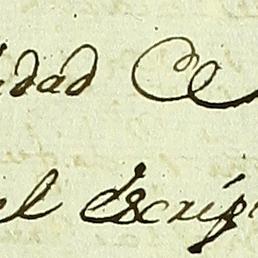 idad
el Escrip